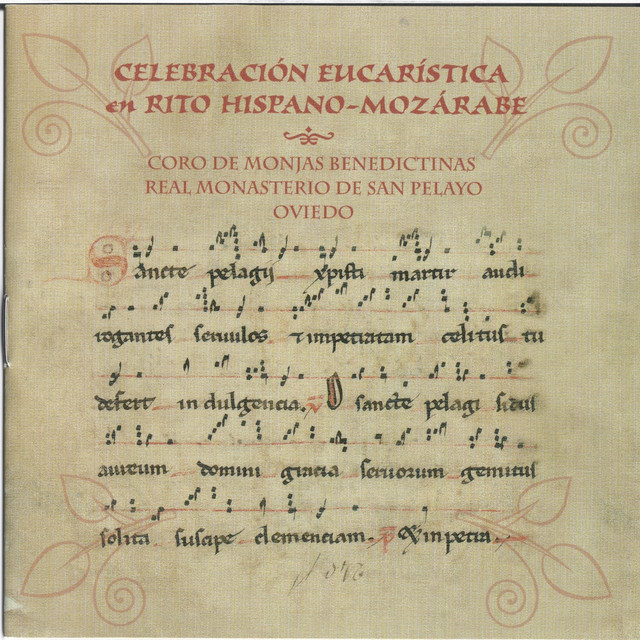 CELEBRACIÓN EUCARÍSTICA
en RITO HISPANO-MOZÁRABE
CORO DE MONJAS BENEDICTINAS
REAL MONASTERIO DE SAN PELAYO
OVIEDO
Sancte pelagij xpisti martir audi
rogantes seruulos & impetratam celitus tu
defert indulgencia. V O sancte pelagi sidus
aureum domini gracia seruorum gemitus
solita suscipe clemenciam. P Ex impetra.